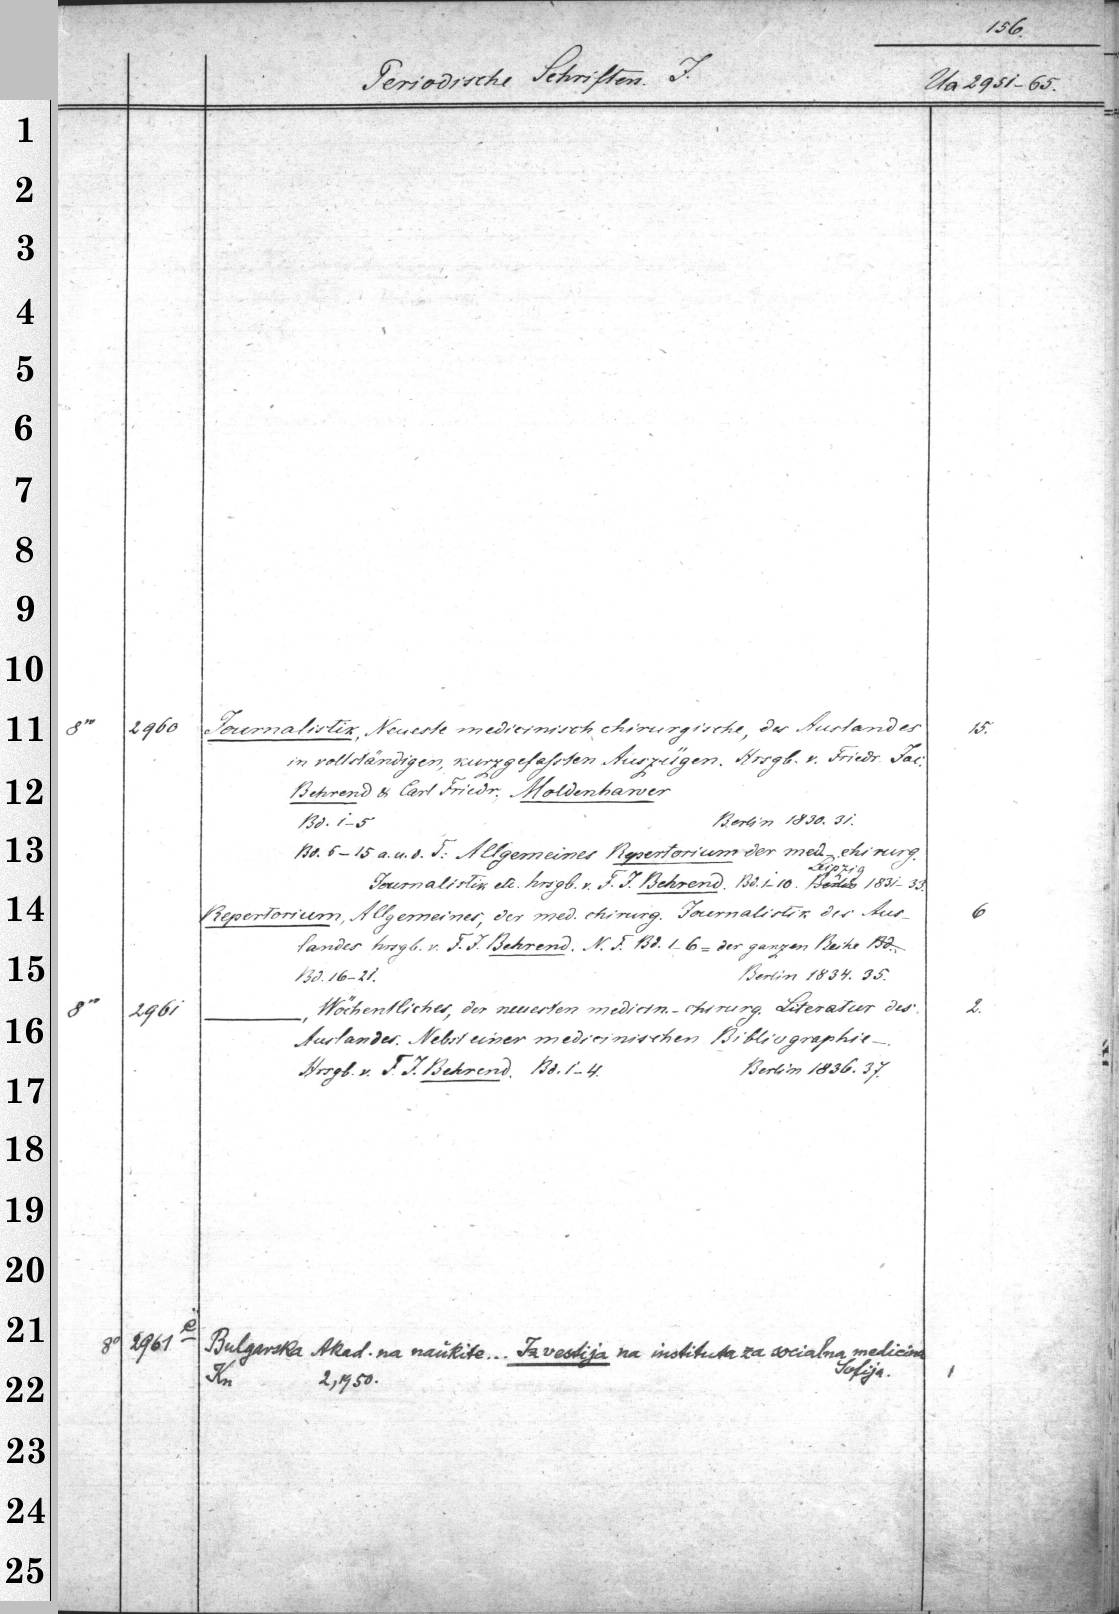 156.
Periodische Schriften. I.
Ua 2951-65.
1
2
3
4
5
6
7
8
9
10
11
8vo 2960 Journalistik, Neueste medicinisch chirurgische, des Auslandes 15.
in vollständigen, kurzgefassten Auszügen. Hrsgb. v. Friedr. Jac.
12
Behrend & Carl Friedr. Moldenhawer
Bd. 1-5 Berlin 1830. 31.
13
Bd. 6-15 a. u. d. T: Allgemeines Repertorium der med. chirurg.
Leipzig
Journalistik etc. hrsgb. v. F. J. Behrend. Bd. 1-10. Berlin 1831-33.
14
Repertorium, Allgemeines, der med. chirurg. Journalistik des Aus- 6
landes hrsgb. v. F. J. Behrend. N. F. Bd. 1-6 = der ganzen Reihe Bd.
15
Bd. 16-21. Berlin 1834. 35.
8vo 2961 ———, Wöchentliches, der neuesten medicin.-chirurg. Literatur des 2.
16
Auslandes. Nebst einer medicinischen Bibliographie.
Hrsgb. v. F. J. Behrend. Bd. 1-4. Berlin 1836. 37.
17
18
19
20
21
8° 2961 e Bulgarska Akad. na naukite... Izvestija na instituta za socialna medicina
Sofija.
22
Kn 2,1950. 1
23
24
25